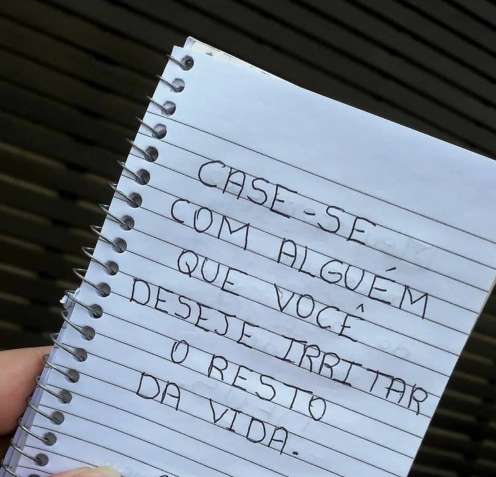 CASE-SE
COM ALGUÉM
QUE VOCÊ
DESEJE IRRITAR
O RESTO
DA VIDA.